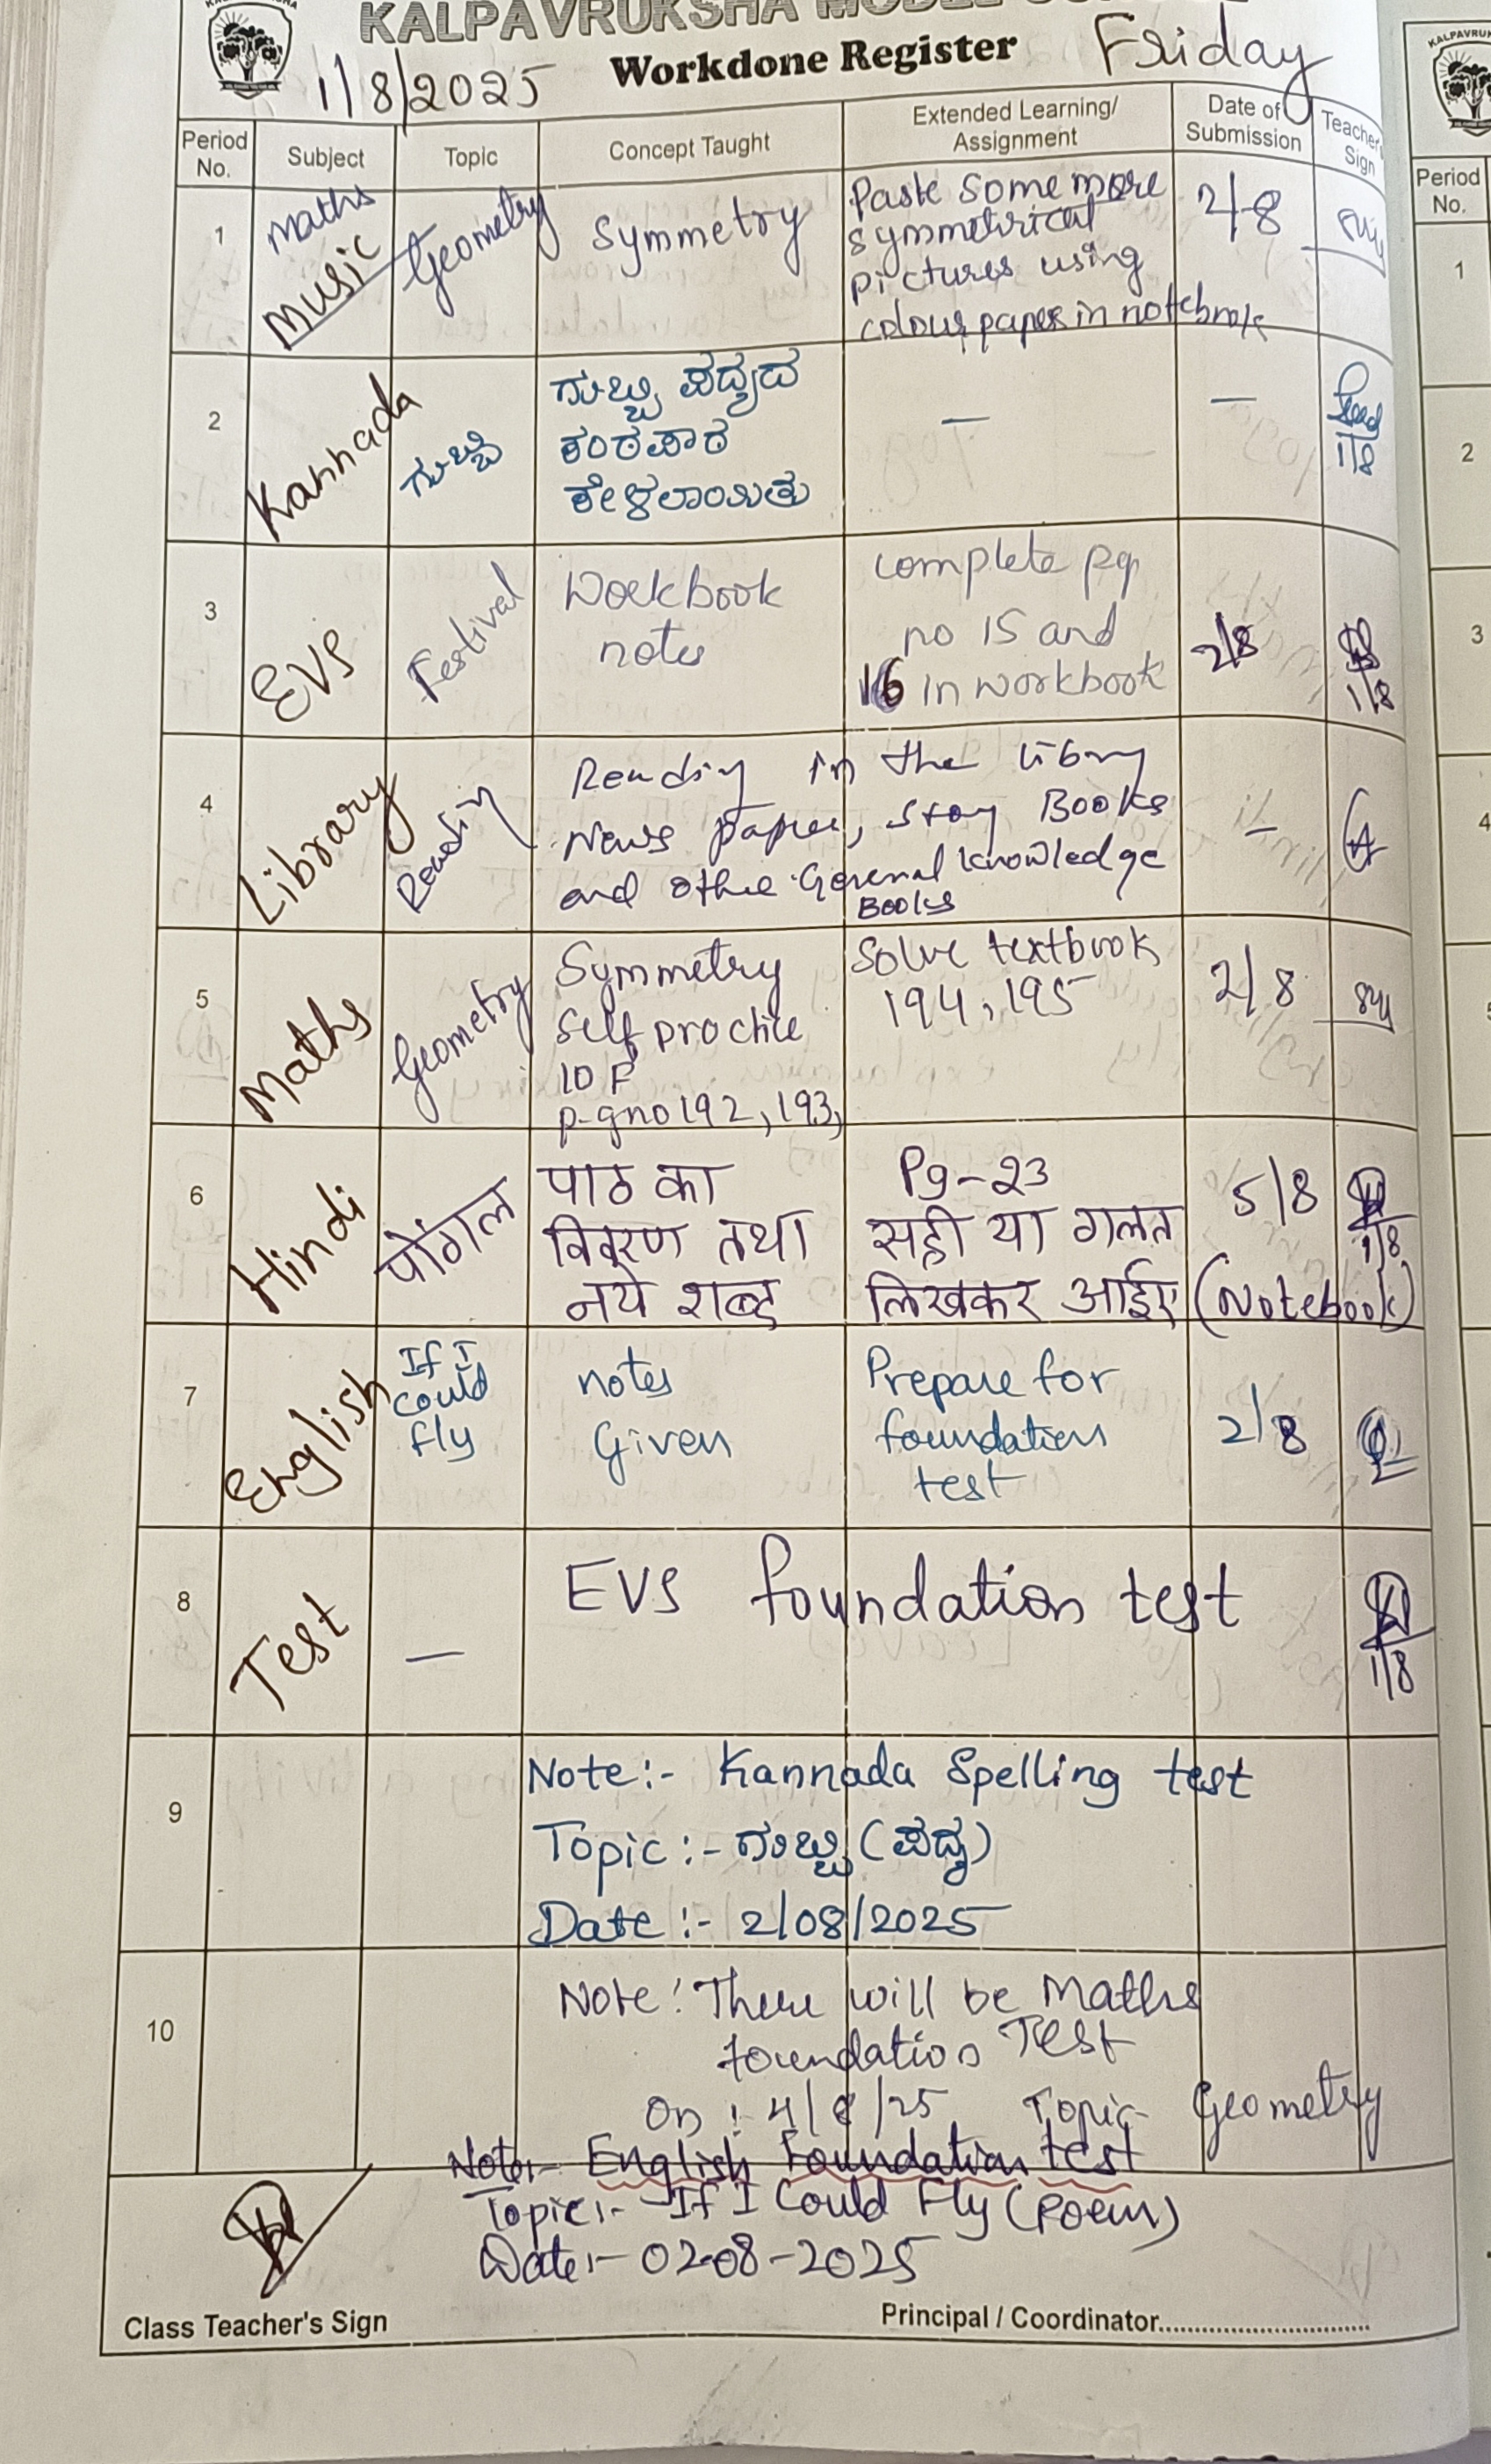 KALPAVRUKSHA MODEL
Workdone Register
1/8/2025
Friday
Period No.
Subject
Topic
Concept Taught
Extended Learning/ Assignment
Date of Submission
Teacher's Sign
1
Maths
Music
Geometry
Symmetry
Paste some more
symmetrical
pictures using
colour paper in notebook
2/8
2
Kannada
ಗುಬ್ಬಿ
ಗುಬ್ಬಿ ಪದ್ಯದ
ಕಂಠಪಾಠ
ಕೇಳಲಾಯಿತು
—
—
1/8
3
EVS
Festival
Workbook
notes
complete pg
no 15 and
16 in workbook
2/8
1/8
4
Library
Reading
Reading in the library
News paper, story Books
and other General knowledge
Books
—
5
Maths
Geometry
Symmetry
Self practice
10 F
p-gno 192, 193,
Solve textbook
194, 195
2/8
6
Hindi
पोंगल
पाठ का
विवरण तथा
नये शब्द
Pg-23
सही या गलत
लिखकर आईए (Notebook)
5/8
1/8
7
English
If I
could
fly
notes
Given
Prepare for
foundation
test
2/8
8
Test
—
EVS foundation test
1/8
9
Note:- Kannada Spelling test
Topic:- ಗುಬ್ಬಿ (ಪದ್ಯ)
Date:- 2/08/2025
10
Note: There will be Maths
foundation Test
On: 4/8/25 Topic Geometry
Note:- English Foundation test
Topic:- If I Could Fly (Poem)
Date:- 02-08-2025
Class Teacher's Sign
Principal / Coordinator..............................
KALPAVRUK
Period
No.
1
2
3
4